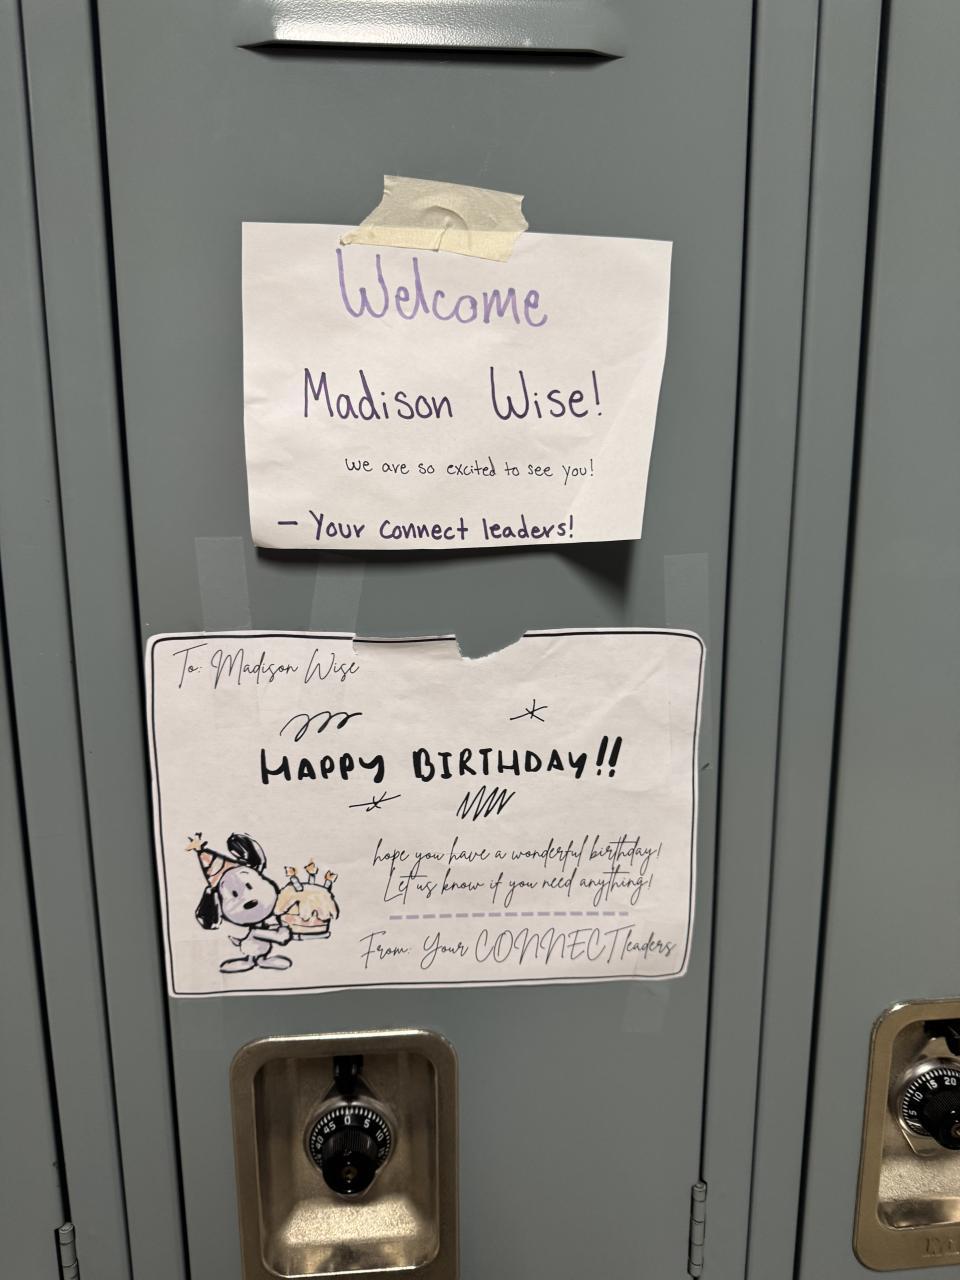 Welcome
Madison Wise!
we are so excited to see you!
- Your Connect leaders!
To: Madison Wise
HAPPY BIRTHDAY!!
hope you have a wonderful birthday!
Let us know if you need anything!
From: Your CONNECT leaders
40 45 0 5 10
5 10 15 20